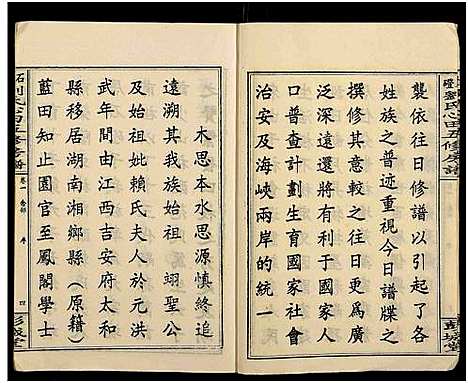 襲依往日修譜以引起了各
姓族之普迹重視今日譜牒之
撰修其意較之往日更為廣
泛深遠還將以此與人口普
口普查計劃生育國家社會
治安及海峽兩岸的統一
木思本水思源慎終追
遠溯其我族始祖翊聖公
及始祖妣賴氏夫人於元洪
武年間由江西吉安府太和
縣移居湖南湘鄉縣（原籍）
藍田知止園官至鳳閣學士
卷一
序
四